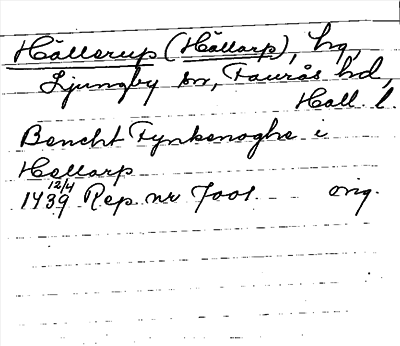 Hällerup (Hällarp), hg,
Ljungby sn, Faurås hd,
Hall. l.
Bencht Fynkenoghe i
Hellarp
12/4
1439 Rep. nr 7001. orig.